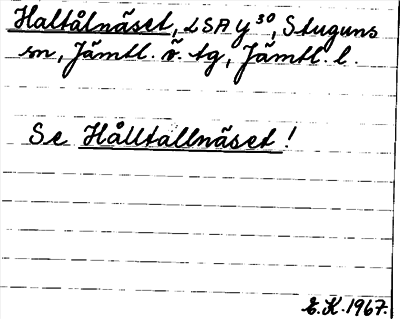 Haltålnäset, LSA y³⁰, Stuguns
sn, Jämtl. ö. tg, Jämtl. l.
Se Hålltallnäset!
E.K. 1967.